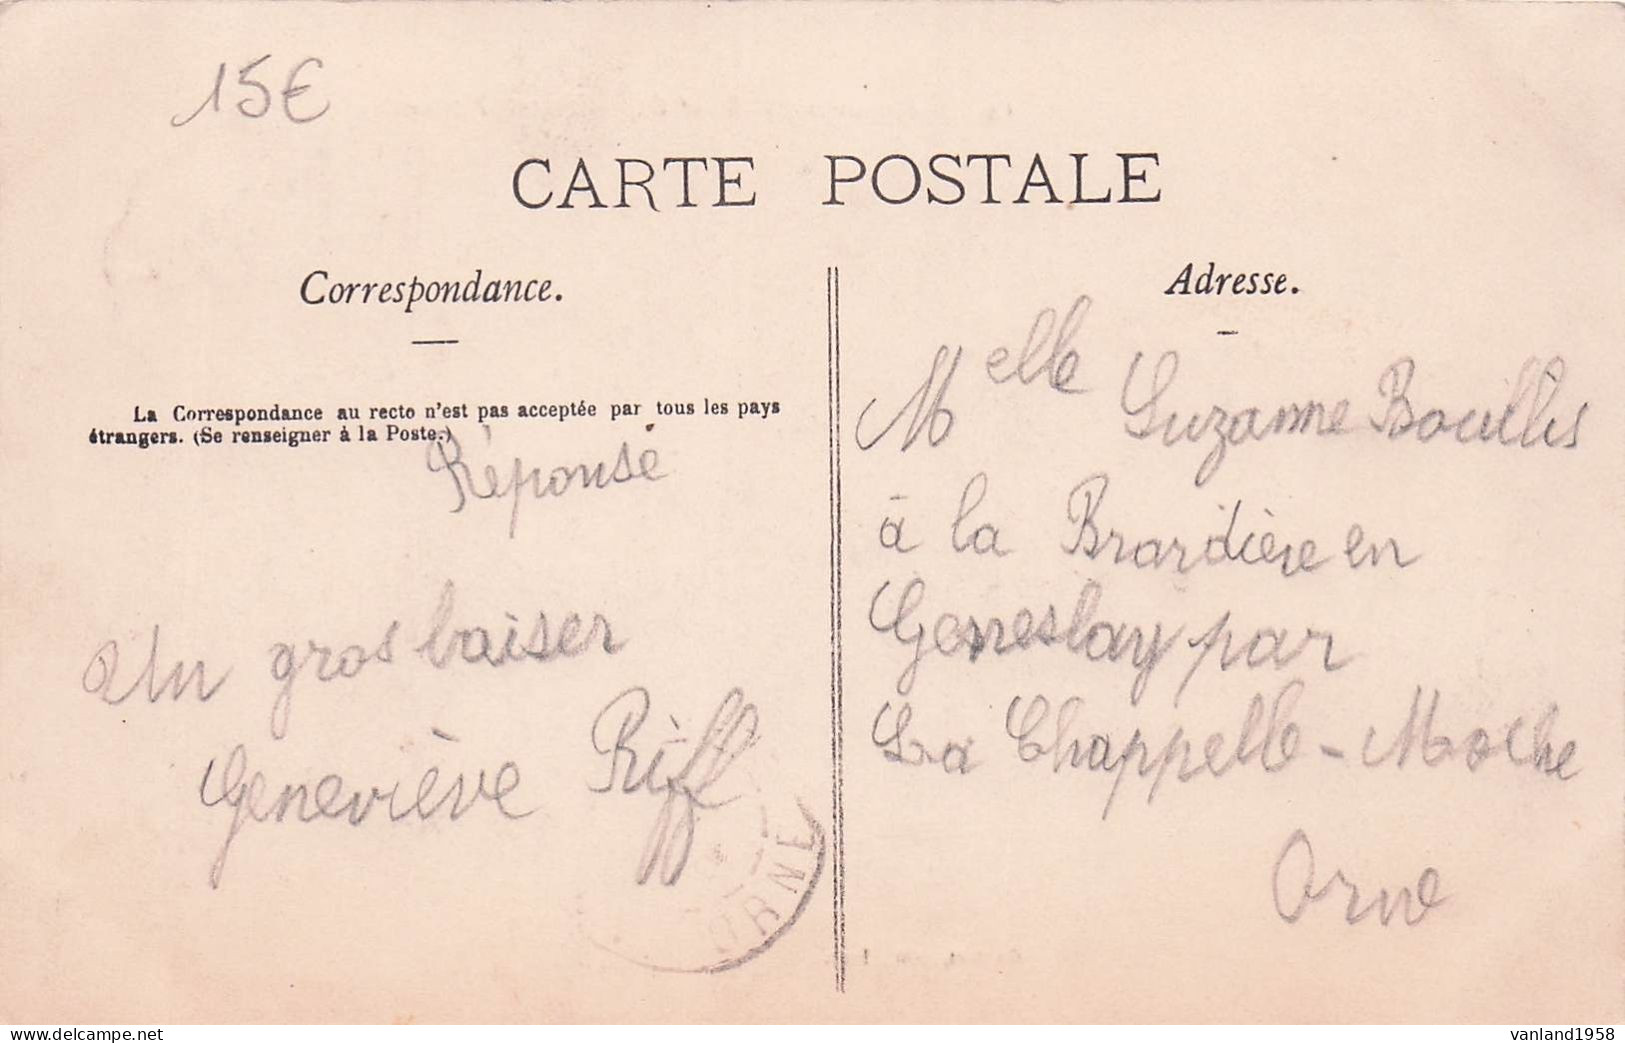 15€
CARTE POSTALE
Correspondance.
La Correspondance au recto n'est pas acceptée par tous les pays
étrangers. (Se renseigner à la Poste.)
Réponse
Un gros baiser
Geneviève Riff
ORNE
Adresse.
Melle Suzanne
à la Brardière en
Geneslay par
La Chappelle-Moche
Orne
www.delcampe.net
vanland1958